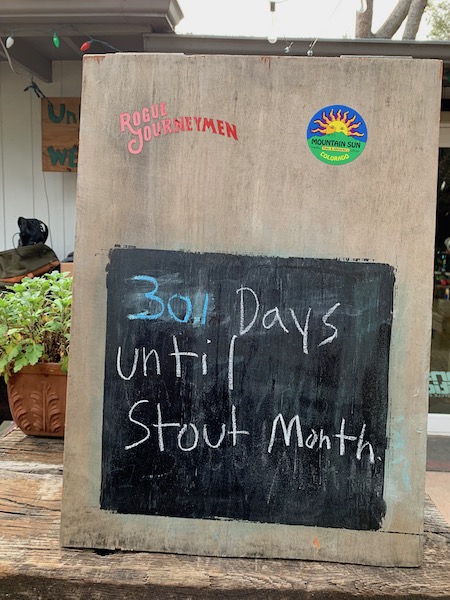 ROGUE
JOURNEYMEN
MOUNTAIN SUN
COLORADO
Un
301 Days
until
Stout Month.